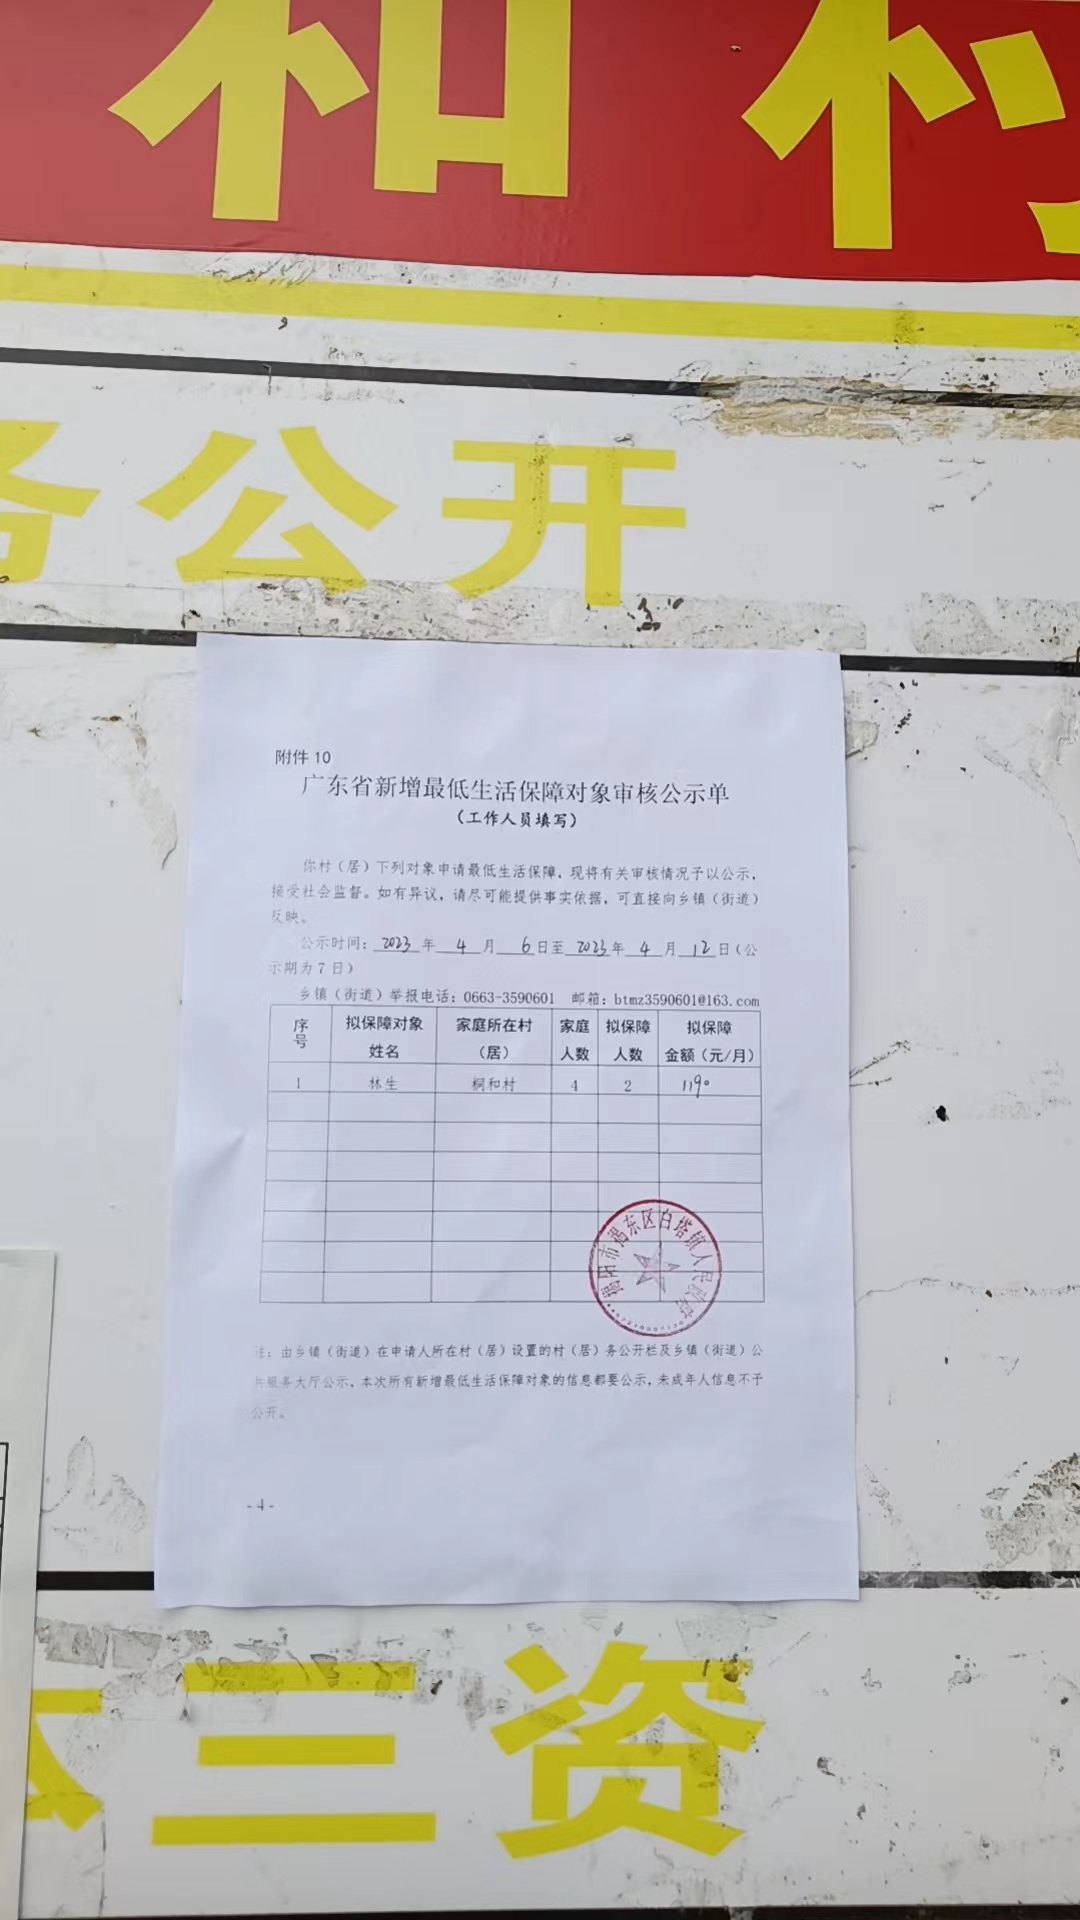 和村
务公开
附件 10
广东省新增最低生活保障对象审核公示单
（工作人员填写）
你村（居）下列对象申请最低生活保障，现将有关审核情况予以公示，
接受社会监督。如有异议，请尽可能提供事实依据，可直接向乡镇（街道）
反映。
公示时间：2023 年 4 月 6 日至 2023 年 4 月 12 日（公
示期为 7 日）
乡镇（街道）举报电话：0663-3590601 邮箱：btmz3590601@163.com
序号 拟保障对象姓名 家庭所在村（居） 家庭人数 拟保障人数 拟保障金额（元/月）
1 林生 桐和村 4 2 1190
揭阳市揭东区白塔镇人民政府
注：由乡镇（街道）在申请人所在村（居）设置的村（居）务公开栏及乡镇（街道）公
共服务大厅公示，本次所有新增最低生活保障对象的信息都要公示，未成年人信息不予
公开。
-4-
三资